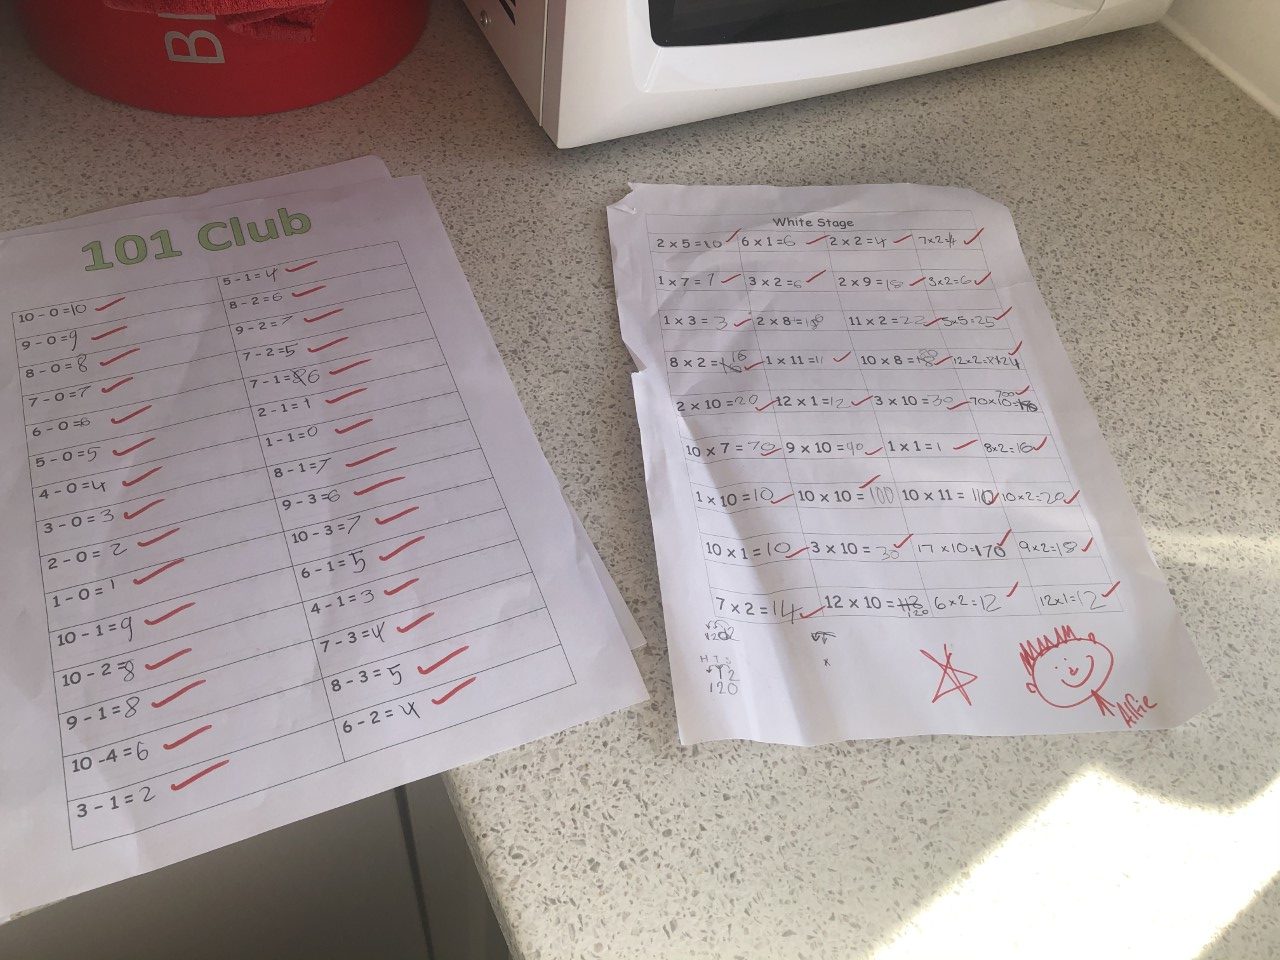 B
101 Club
10 - 0 = 10
9 - 0 = 9
8 - 0 = 8
7 - 0 = 7
6 - 0 = 6
5 - 0 = 5
4 - 0 = 4
3 - 0 = 3
2 - 0 = 2
1 - 0 = 1
10 - 1 = 9
10 - 2 = 8
9 - 1 = 8
10 -4 = 6
3 - 1 = 2
5 - 1 = 4
8 - 2 = 6
9 - 2 = 7
7 - 2 = 5
7 - 1 = 6
2 - 1 = 1
1 - 1 = 0
8 - 1 = 7
9 - 3 = 6
10 - 3 = 7
6 - 1 = 5
4 - 1 = 3
7 - 3 = 4
8 - 3 = 5
6 - 2 = 4
White Stage
2 x 5 = 10 6 x 1 = 6 2 x 2 = 4 7x2=
1 x 7 = 7 3 x 2 = 6 2 x 9 = 18 3x2=6
1 x 3 = 3 2 x 8 = 11 x 2 = 22 5x5=25
8 x 2 = 16 1 x 11 = 11 10 x 8 = 12x2=24
2 x 10 = 20 12 x 1 = 12 3 x 10 = 30 70x10= 700
10 x 7 = 70 9 x 10 = 90 1 x 1 = 1 8x2=16
1 x 10 = 10 10 x 10 = 100 10 x 11 = 110 10x2=20
10 x 1 = 10 3 x 10 = 30 17 x 10=170 9x2=18
7 x 2 = 14 12 x 10 = 120 6x2=12 12x1=12
H T
12
120
Alfie